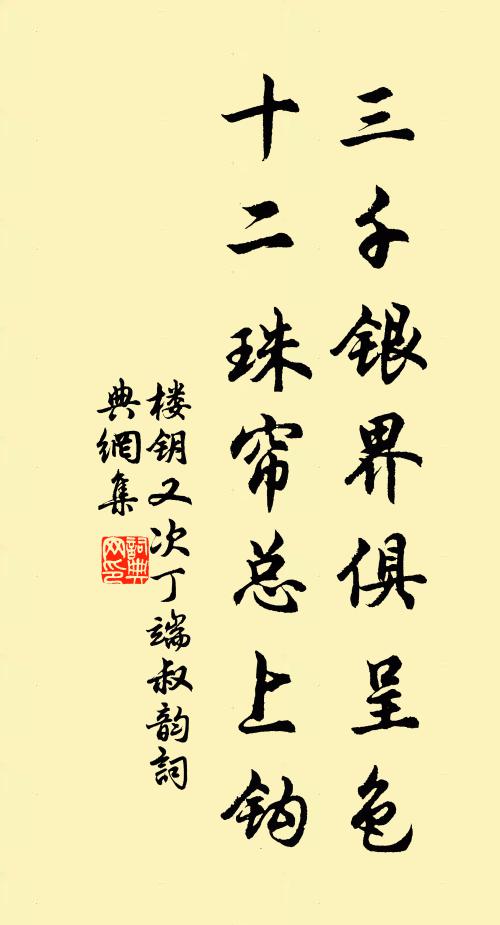 三千银界俱呈色
十二珠帘总上钩
楼钥又次丁端叔韵词
典網集
詞典網印